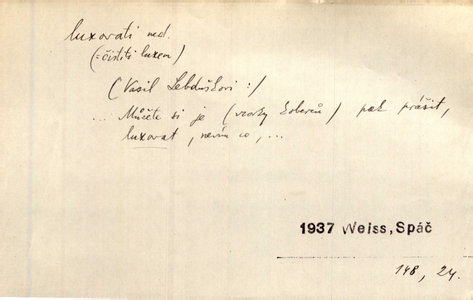 luxovati ned.
(= čistiti luxem)
(Vasil Lebduškovi :)
... Můžete si je (vzorky koberců) pak prášit,
luxovat, nevím co, ...
1937 Weiss, Spáč
148, 24.